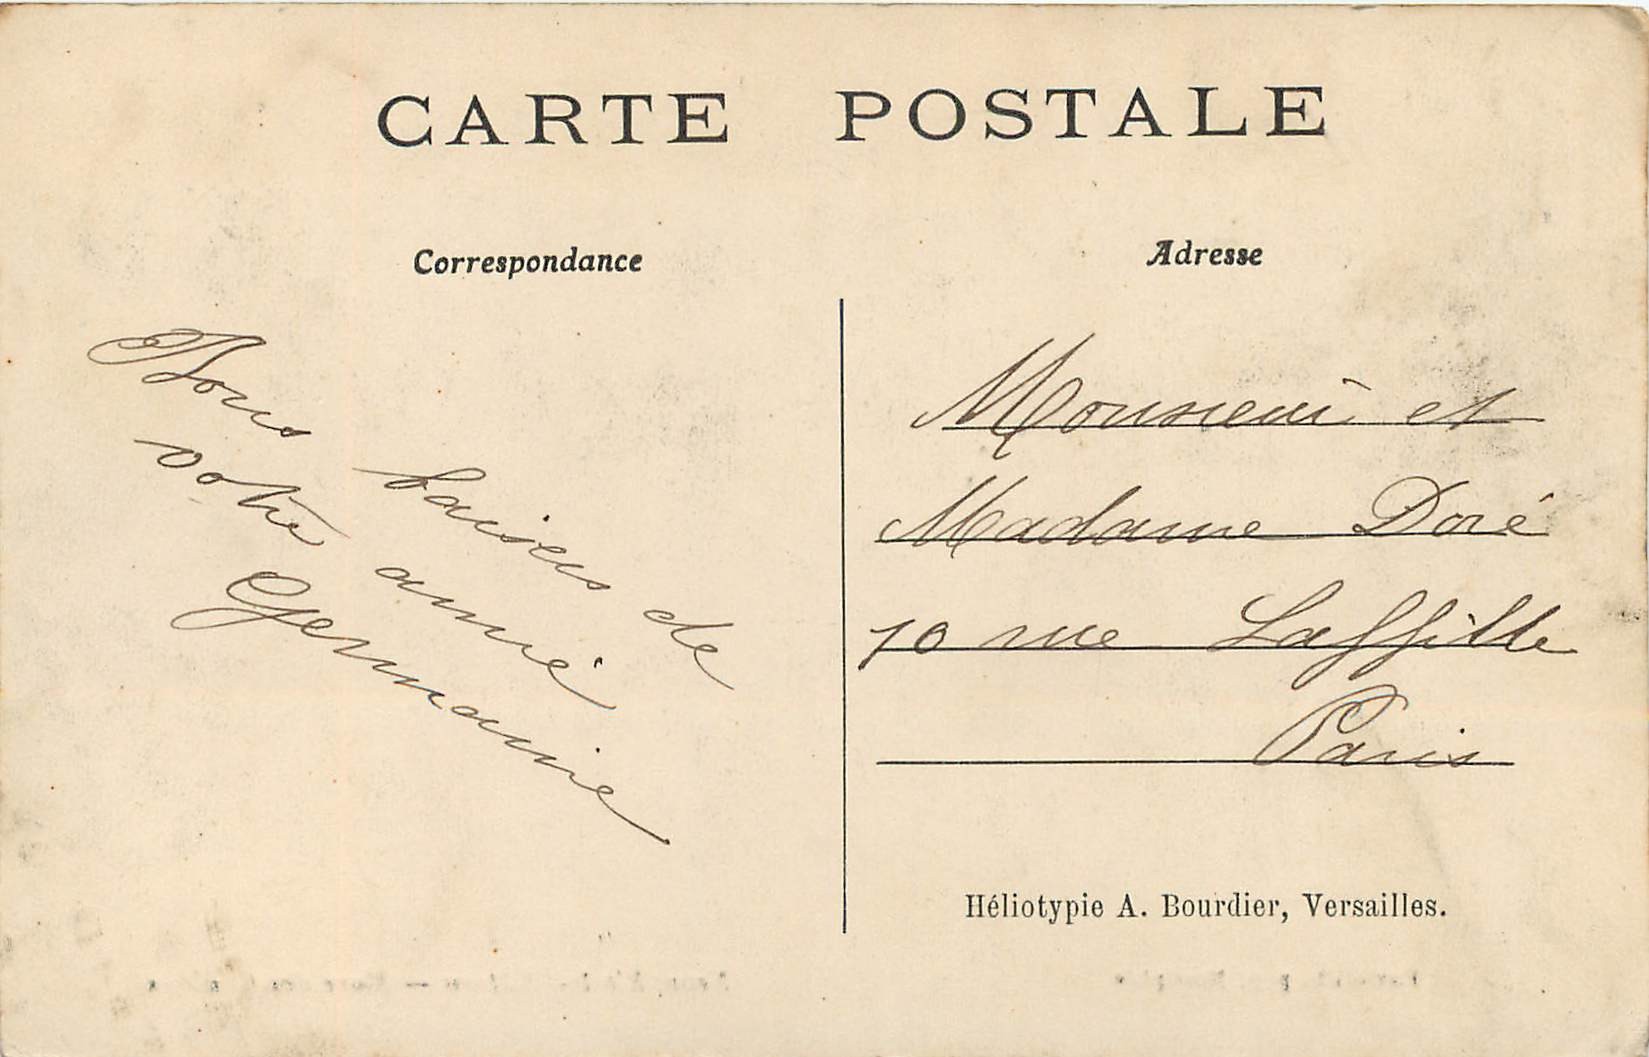 CARTE POSTALE
Correspondance
Adresse
Bons baisers de
votre amie
Germaine
Monsieur et
Madame Doré
70 rue Laffitte
Paris
Héliotypie A. Bourdier, Versailles.